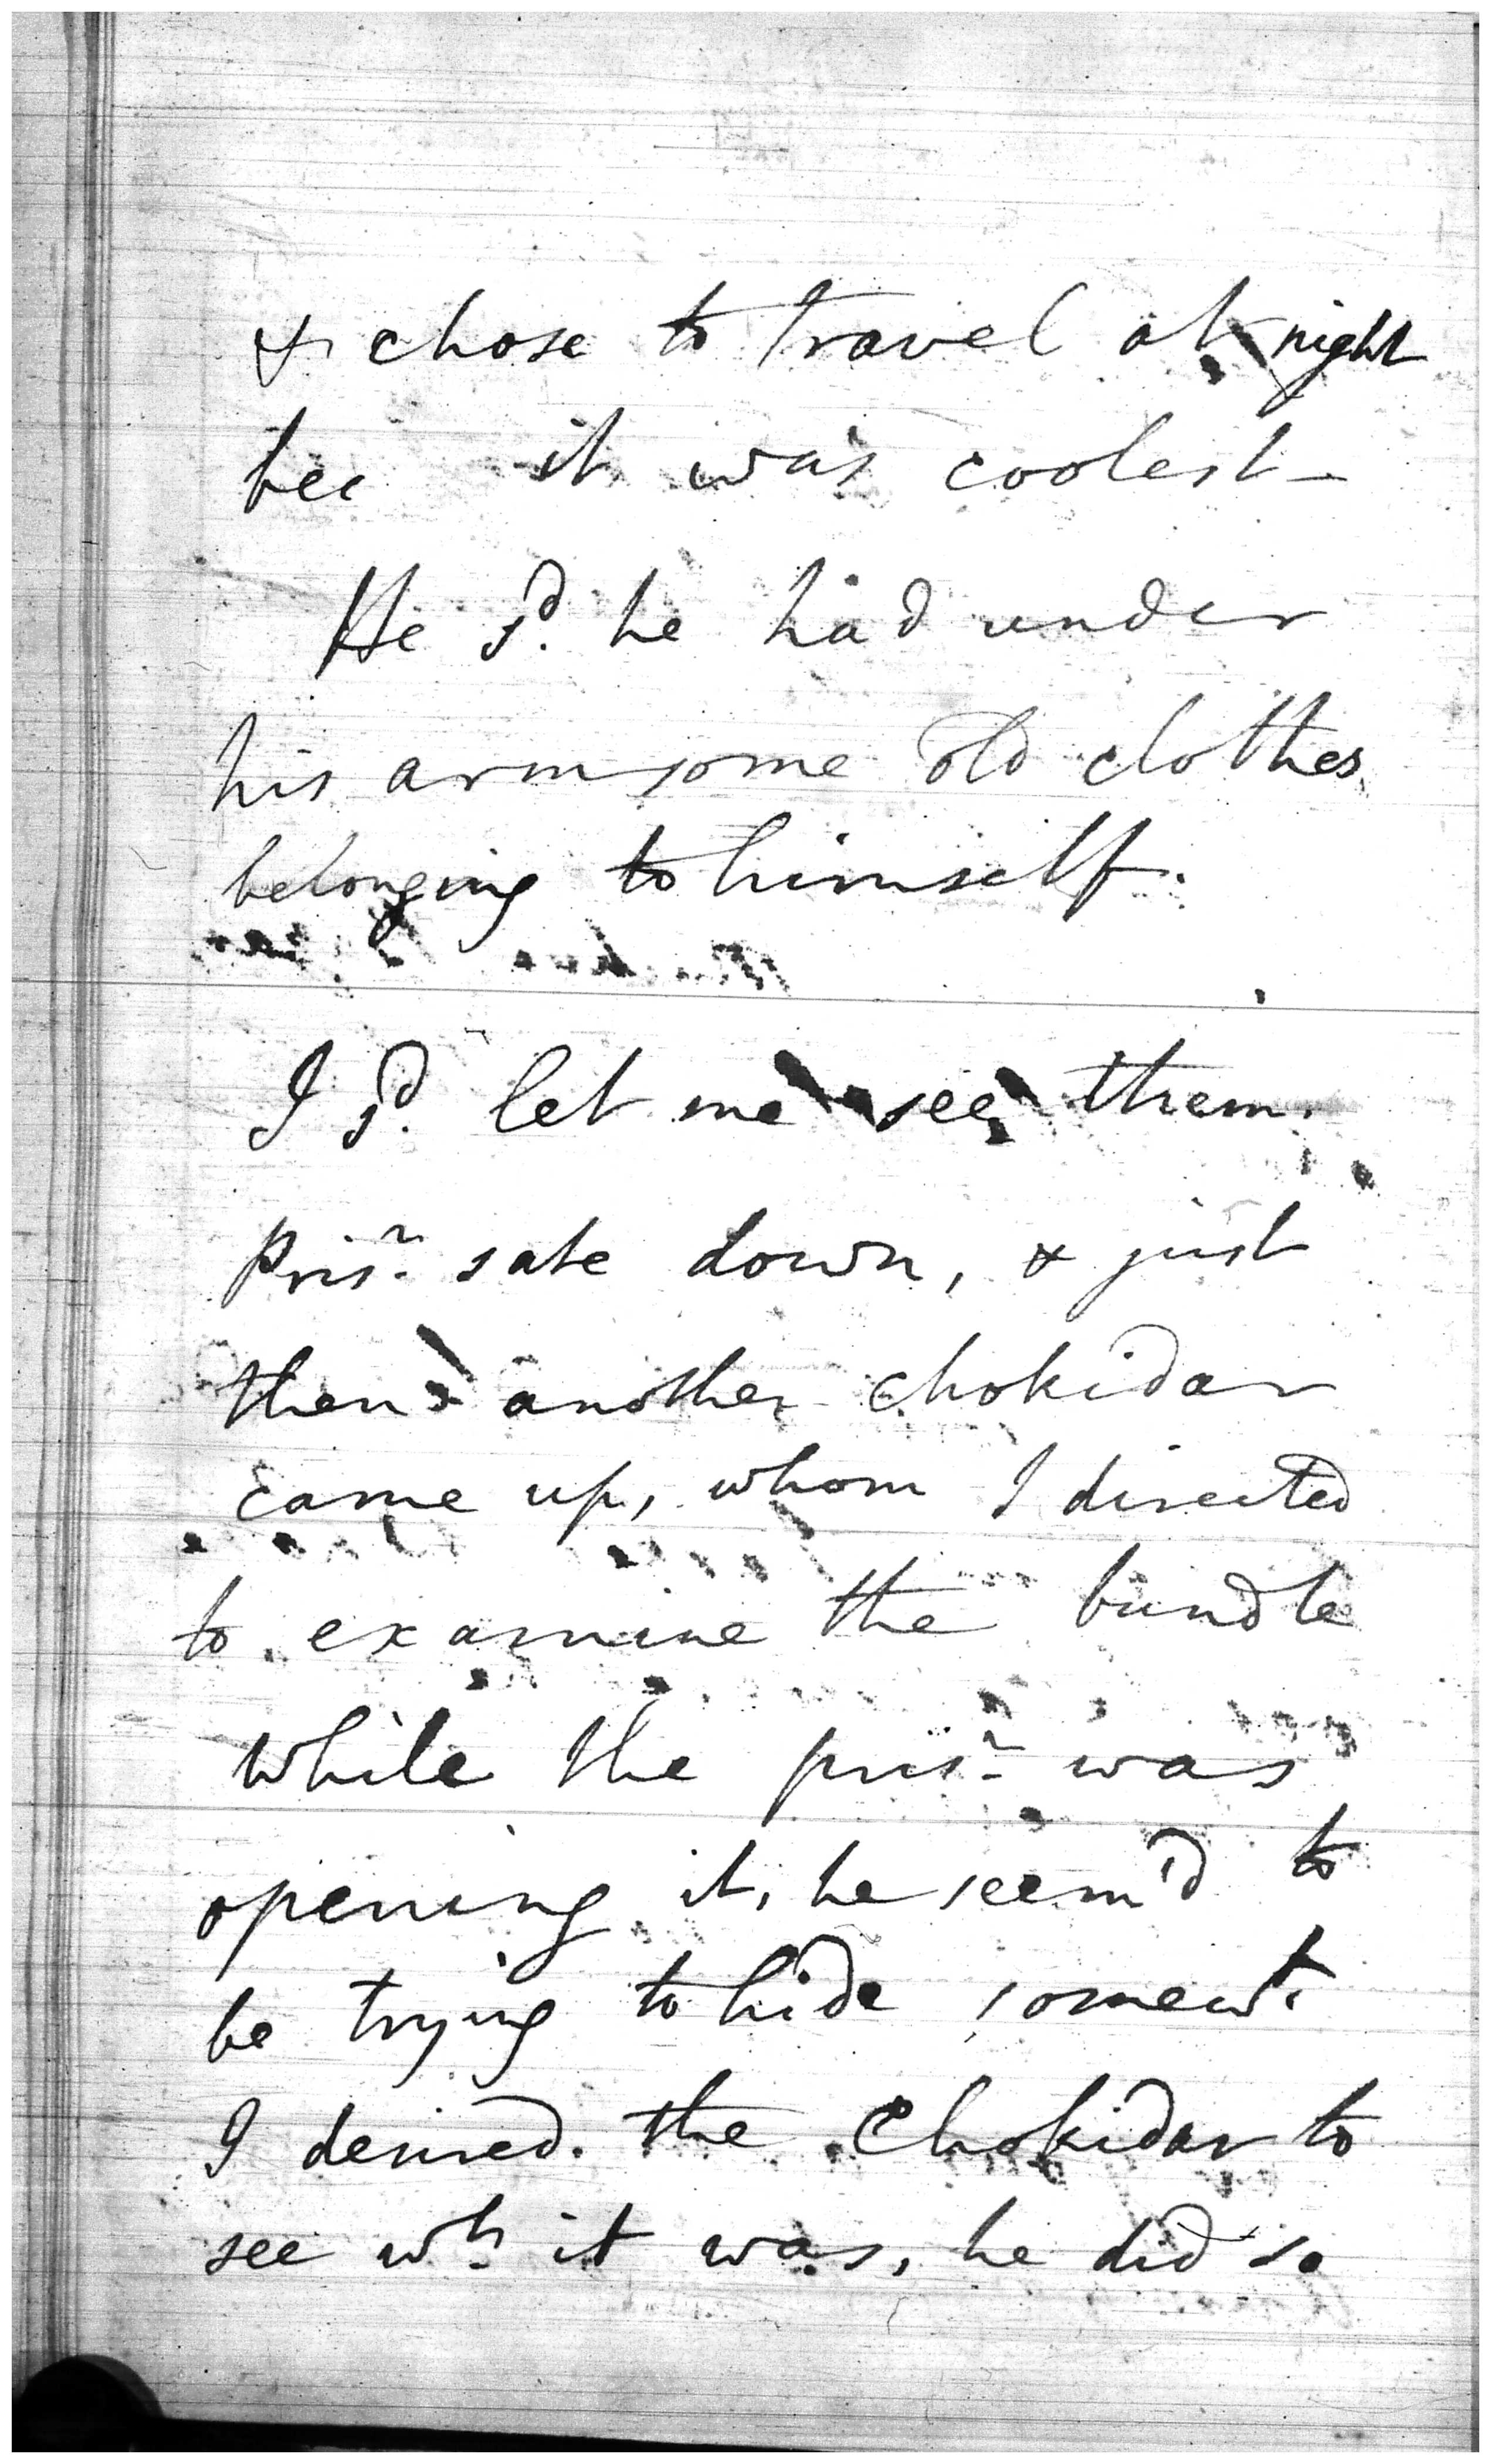 & chose to travel at night
bec it was coolest -
He sd. he had under
his arm some old clothes
belonging to himself.
I sd. let me see them.
Prisr. sate down, & just
then another chokidar
came up, whom I directed
to examine the bundle
while the prisr. was
opening it, he seem'd to
be trying to hide somewt.
I desired. the Chokidar to
see wh. it was, he did so